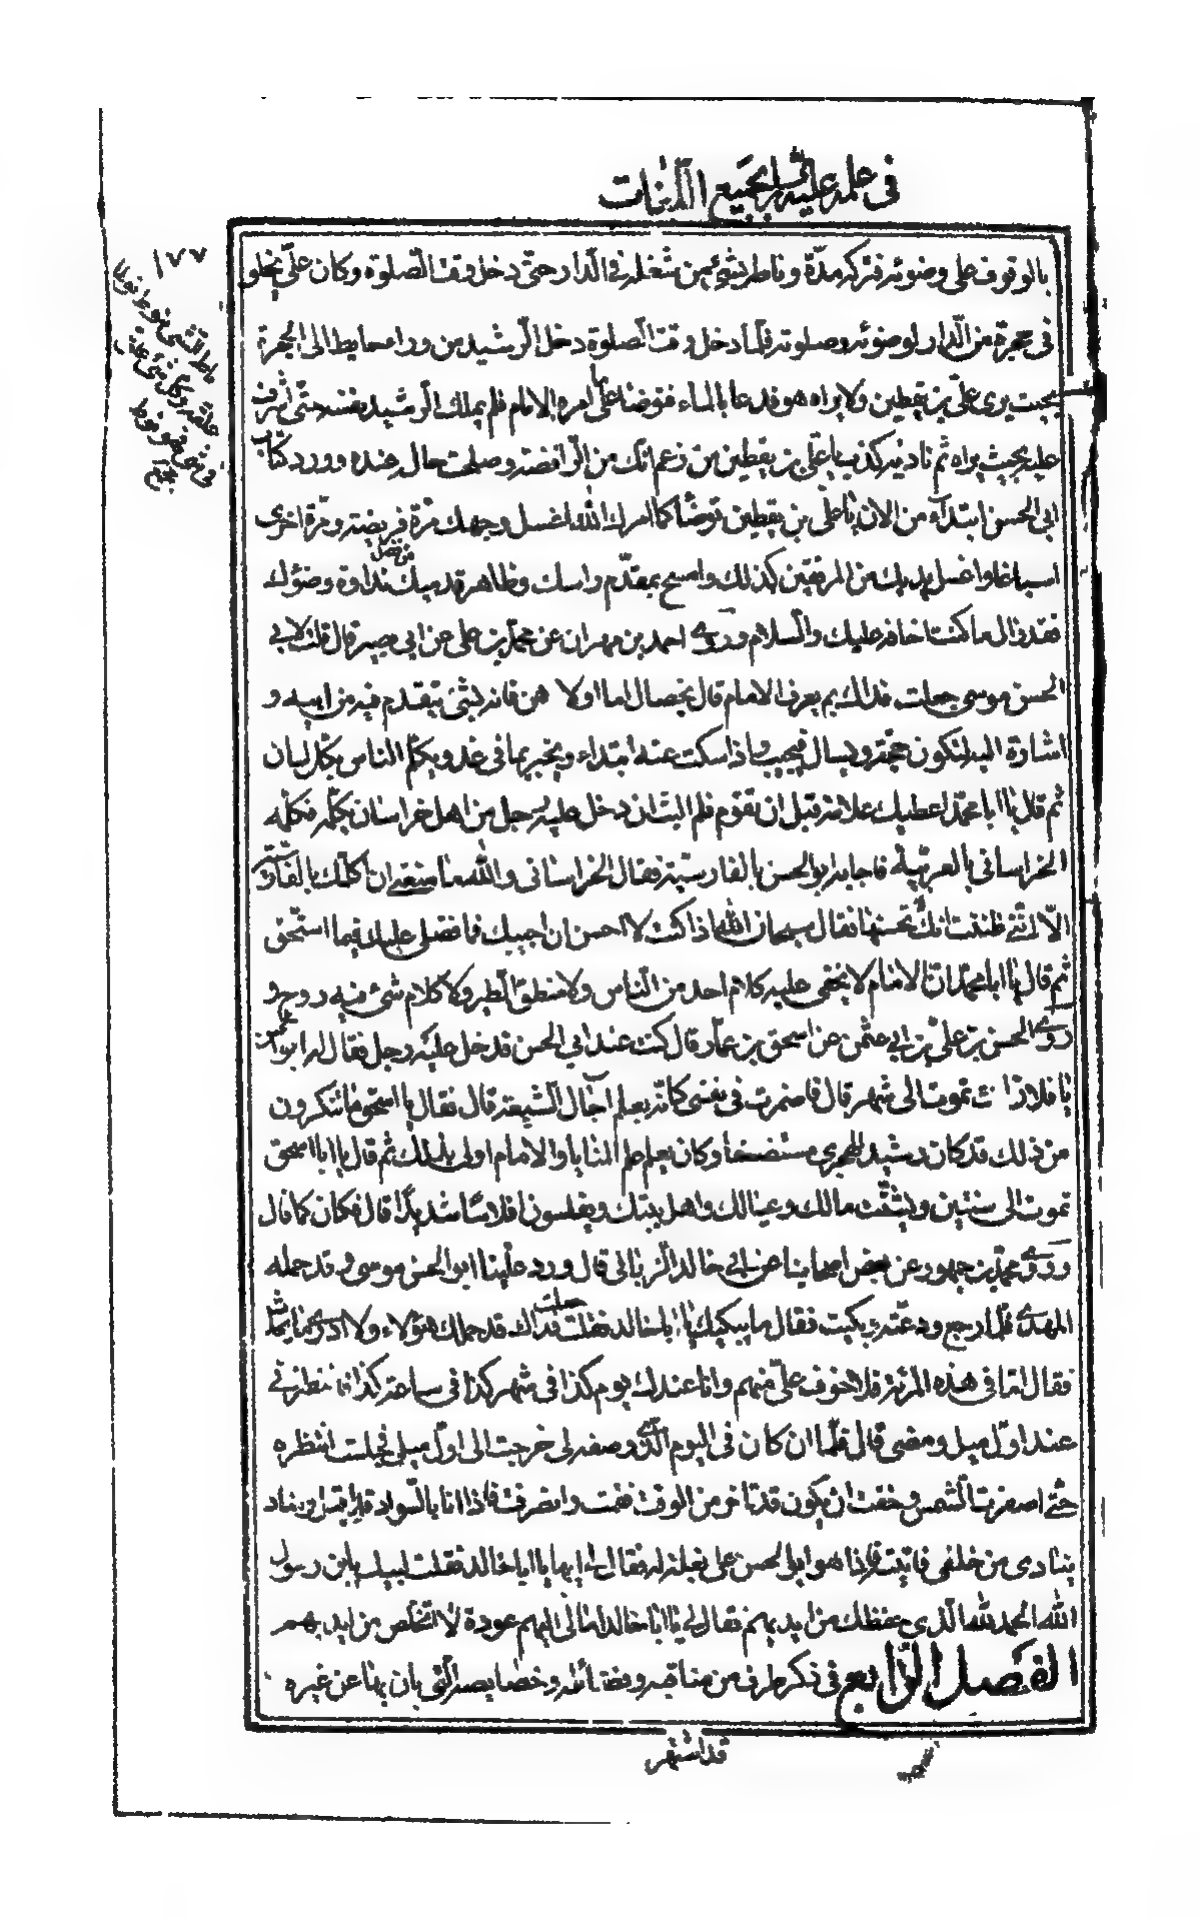 في علمه عليه السلام بجميع اللغات
١٧٧
بالوقوف على وضوئه فتركه مدّة وناطه بشئ من شغله في الدار حتّى دخل وقت الصلوة وكان علي يخلو
في حجرة من الدار لوضوئه وصلوته فلمّا دخل وقت الصلوة دخل الرشيد من وراء حايط الى الحجرة
بحيث يرى عليّ بن يقطين ولا يراه هو فدعا بالماء فتوضّا على ما امره الامام فلم يملك الرشيد نفسه حتّى اشرف
عليه بحيث يراه ثم ناديه كذب يا عليّ بن يقطين من زعم انّك من الرافضة وصلحت حاله عنده وورد كتاب
ابي الحسن ابتداء من الان يا عليّ بن يقطين توضّا كما امرك اللّه اغسل وجهك مرّة فريضة ومرّة اخرى
اسباغا واغسل يديك من المرفقين كذلك وامسح بمقدّم راسك وظاهر قدميك من فضل نداوة وضوئك
فقد زال ما كنت اخافه عليك والسلام وروى احمد بن مهران عن محمّد بن علي عن ابي بصير قال قلت لابي
الحسن موسى جعلت فداك بم يعرف الامام قال بخصال اما اولا هن فانه بشئ تيقدم فيه من ابيه و
اشارة اليه لتكون حجّة ويسال فيجيب واذا سكت عنه ابتداء ويخبر بما في غد ويكلّم الناس بكل لسان
ثم قال يا ابا محمّد اعطيك علامة قبل ان تقوم فلم البث ان دخل عليه رجل من اهل خراسان يكلّمه فكلّمه
الخراساني بالعربيّة فاجابه ابو الحسن بالفارسيّة فقال الخراساني واللّه ما منعني ان اكلّمك بالفارسيّة
الّا انّني ظننت انك لا تحسنها فقال سبحان اللّه اذا كنت لا احسن ان اجيبك فما فضلي عليك فيما استحق
ثم قال يا ابا محمّد ان الامام لا يخفى عليه كلام احد من الناس ولا منطق الطير ولا كلام شئ فيه روح و
روى الحسن بن عليّ بن ابي عثمن عن اسحق بن عمّار قال كنت عند ابي الحسن فدخل عليه رجل فقال له ابو الحسن
يا فلان انت تموت الى شهر قال فاضمرت في نفسي كانّه يعلم اجال الشيعة قال فقال يا اسحق ما تنكرون
من ذلك قد كان رشيد الهجري مستضعفا وكان يعلم علم المنايا والامام اولى بذلك ثم قال يا ابا اسحق
تموت الى سنتين ويتشتّت مالك وعيالك واهل بيتك ويفلسون افلاسا شديدا قال فكان كما قال
وروى محمّد بن جمهور عن بعض اصحابنا عن ابي خالد الزبالي قال ورد علينا ابو الحسن موسى وقد حمله
المهدي فلمّا رجع ودعته بكيت فقال ما يبكيك يا ابا خالد فقلت جعلت فداك قد حملك هؤلاء ولا ادري ما يحدث
فقال امّا في هذه المرّة فلا خوف عليّ منهم وانا عندك يوم كذا في شهر كذا في ساعة كذا فانتظرني
عند اوّل ميل ومضى قال فلمّا ان كان في اليوم الّذي وصفه لي خرجت الى اوّل ميل فجلست انتظره
حتّى اصفرت الشمس وخفت ان يكون قد تاخر من الوقت فقمت وانصرفت فاذا انا بالسواد قد اقبل ومناد
ينادي من خلفي فاتيت فاذا هو ابو الحسن على بغلة له فقال لي ايها يا ابا خالد فقلت لبيك يابن رسول
اللّه الحمد للّه الّذي حفظك من ايديهم فقال لي يا ابا خالد امّا انّ لي اليهم عودة لا اتخلّص من ايديهم
الفصل الرّابع في ذكر طرف من مناقبه وفضائله وخصايصه الّتي بان بها عن غيره
قد اشتهر